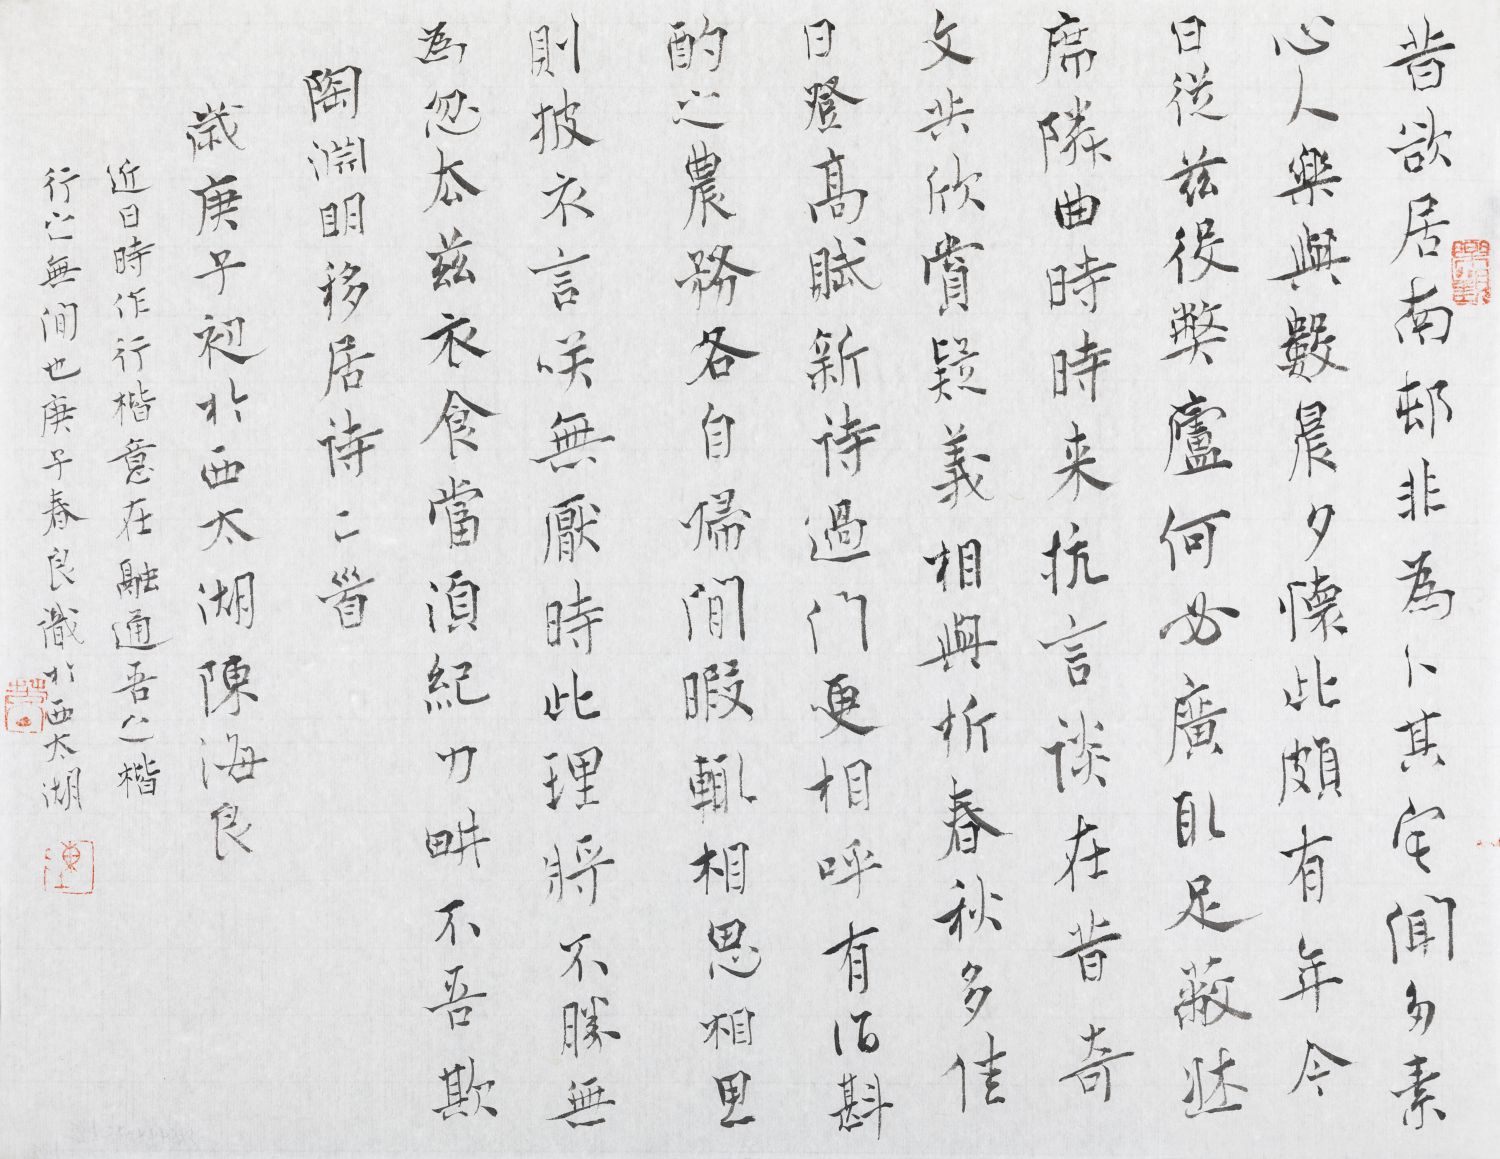 昔欲居南邨非為卜其宅聞多素
心人樂與數晨夕懷此頗有年今
日從茲役弊廬何必廣取足蔽牀
席隣曲時時来抗言談在昔奇
文共欣賞疑義相與析春秋多佳
日登高賦新詩過门更相呼有酒斟
酌之農務各自歸閒暇輒相思相思
則披衣言咲無厭時此理將不勝無
為忽去茲衣食當須紀力畊不吾欺
陶淵明移居詩二首
歲庚子初於西太湖陳海良
近日時作行楷意在融通吾之楷
行之無間也庚子春良識於西太湖